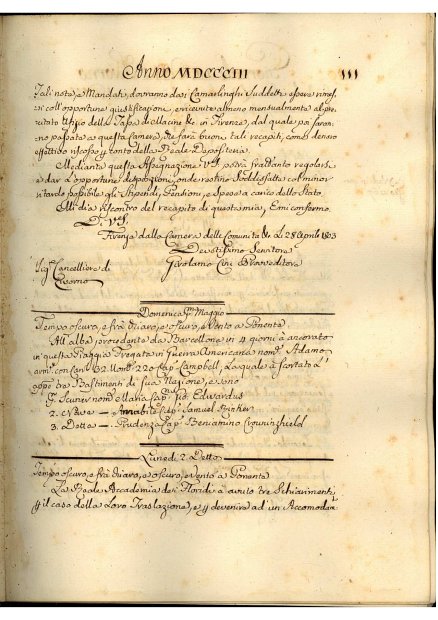 Anno MDCCCIII 111
Tali note, e Mandati, dovranno dai Camarlinghi Suddetti essere rimes-
si coll'opportune giustificazioni, e ricevute almeno mensualmente al pre-
citato Ufizio delle Tasse di in Firenze, dal quale poi saran-
no passate a questa Camera, che farà buoni tali recapiti, come denaro
effettivo riscosso p conto della Reale Depositeria.
Mediante questa Assegnazione V.S. potrà frattanto regolarsi
e dar l'opportune disposizioni, onde restino Soddisfatti col minor
ritardo possibile gli Stipendi, Pensioni, e Spese a carico dello Stato.
Mi dia riscontro del recapito di questa mia, E mi confermo
D. V.S.
Firenze dalla Camera delle Comunità &c. Li 28 Aprile 1803
Devotissimo Servitore
Sig. Cancelliere di Girolamo Cini Provveditore
Livorno
Domenica p.mo Maggio
Tempo oscuro, e frà chiaro, e oscuro, e Vento a Ponente
All'alba procedente da Barcellona in 4 giorni è ancorato
in questa Spiaggia Fregata in Guerra Americana nom. Adamo
arm. con Cann. 32. Uom. 220 Cap. Campbell, La quale à scortato à
appe tre Bastimenti di sua Nazione, e sono
Scuner nom. Maria Cap. Gio. Edwardus
2. — Annabile Cap. Samuel
3. Detto — Prudenza Cap. Beniamino Crouninshield
Lunedì 2. Detto
Tempo oscuro, e frà chiaro, e oscuro, e Vento a Ponente
La Reale Accademia dei Floridi à avuto tre Schiarimenti
p il caso della Loro Traslazione, e p devenire ad un Accomoda-